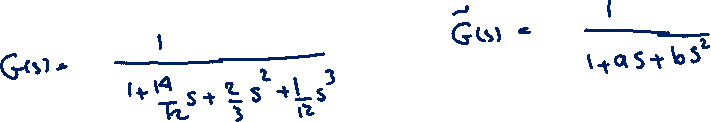 G(s) = 1 / (1 + 14/12 s + 2/3 s² + 1/12 s³)
G̃(s) = 1 / (1 + as + bs²)